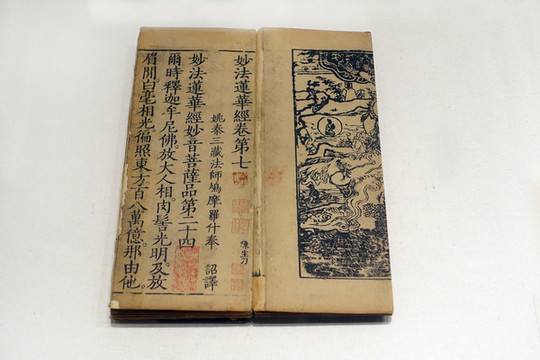 妙法蓮華經卷第七
姚秦三藏法師鳩摩羅什奉 詔譯
妙法蓮華經妙音菩薩品第二十四
爾時釋迦牟尼佛。放大人相。肉髻光明。及放
眉間白毫相光。徧照東方百八萬億那由他。